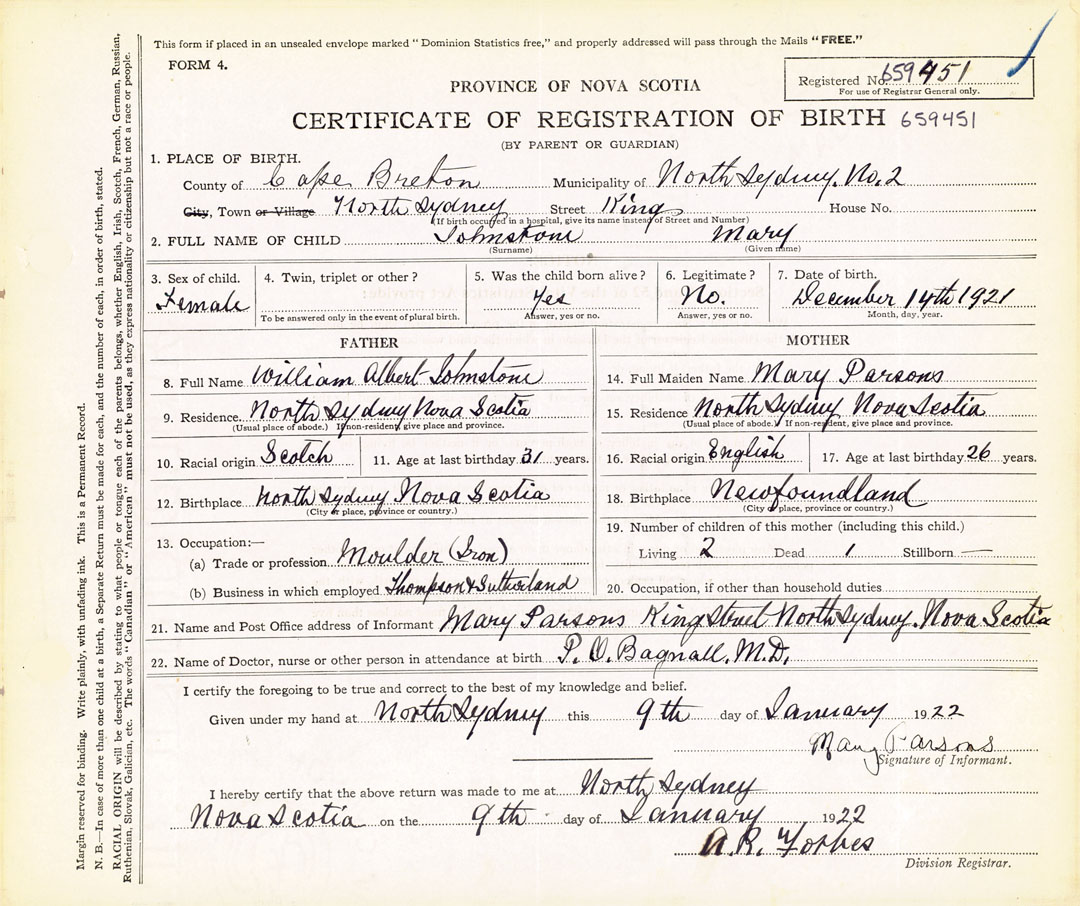 This form if placed in an unsealed envelope marked "Dominion Statistics free," and properly addressed will pass through the Mails "FREE."
FORM 4.
Registered No. 659451
For use of Registrar General only.
PROVINCE OF NOVA SCOTIA
CERTIFICATE OF REGISTRATION OF BIRTH 659451
(BY PARENT OR GUARDIAN)
1. PLACE OF BIRTH.
County of Cape Breton Municipality of North Sydney. No. 2
City, Town or Village North Sydney Street King House No.
(If birth occurred in a hospital, give its name instead of Street and Number)
2. FULL NAME OF CHILD Johnstone Mary
(Surname) (Given name)
3. Sex of child. 4. Twin, triplet or other? 5. Was the child born alive? 6. Legitimate? 7. Date of birth.
Female Yes No. December 14th 1921
To be answered only in the event of plural birth. Answer, yes or no. Answer, yes or no. Month, day, year.
FATHER
8. Full Name William Albert Johnstone
9. Residence. North Sydney Nova Scotia
(Usual place of abode.) If non-resident, give place and province.
10. Racial origin Scotch 11. Age at last birthday 31 years.
12. Birthplace North Sydney Nova Scotia
(City or place, province or country.)
13. Occupation:—
(a) Trade or profession Moulder (Iron)
(b) Business in which employed Thompson & Sutherland
MOTHER
14. Full Maiden Name Mary Parsons
15. Residence North Sydney Nova Scotia
(Usual place of abode.) If non-resident, give place and province.
16. Racial origin English 17. Age at last birthday 26 years.
18. Birthplace Newfoundland
(City or place, province or country.)
19. Number of children of this mother (including this child.)
Living 2 Dead 1 Stillborn —
20. Occupation, if other than household duties
21. Name and Post Office address of Informant Mary Parsons King Street North Sydney. Nova Scotia
22. Name of Doctor, nurse or other person in attendance at birth P. O. Bagnall. M.D.
I certify the foregoing to be true and correct to the best of my knowledge and belief.
Given under my hand at North Sydney this 9th day of January 1922
Mary Parsons
Signature of Informant.
I hereby certify that the above return was made to me at North Sydney
Nova Scotia on the 9th day of January 1922
A. R. Forbes
Division Registrar.
Margin reserved for binding. Write plainly, with unfading ink. This is a Permanent Record.
N. B.—In case of more than one child at a birth, a Separate Return must be made for each, and the number of each, in order of birth, stated.
RACIAL ORIGIN will be described by stating to what people or tongue each of the parents belongs, whether English, Irish, Scotch, French, German, Russian,
Ruthenian, Slovak, Galician, etc. The words "Canadian" or "American" must not be used, as they express nationality or citizenship but not a race or people.